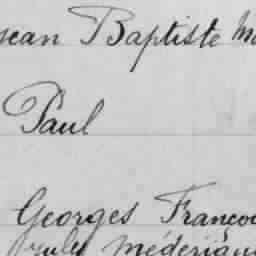 Jean Baptiste Ma
Paul
Georges Françoi
Jules Médérique